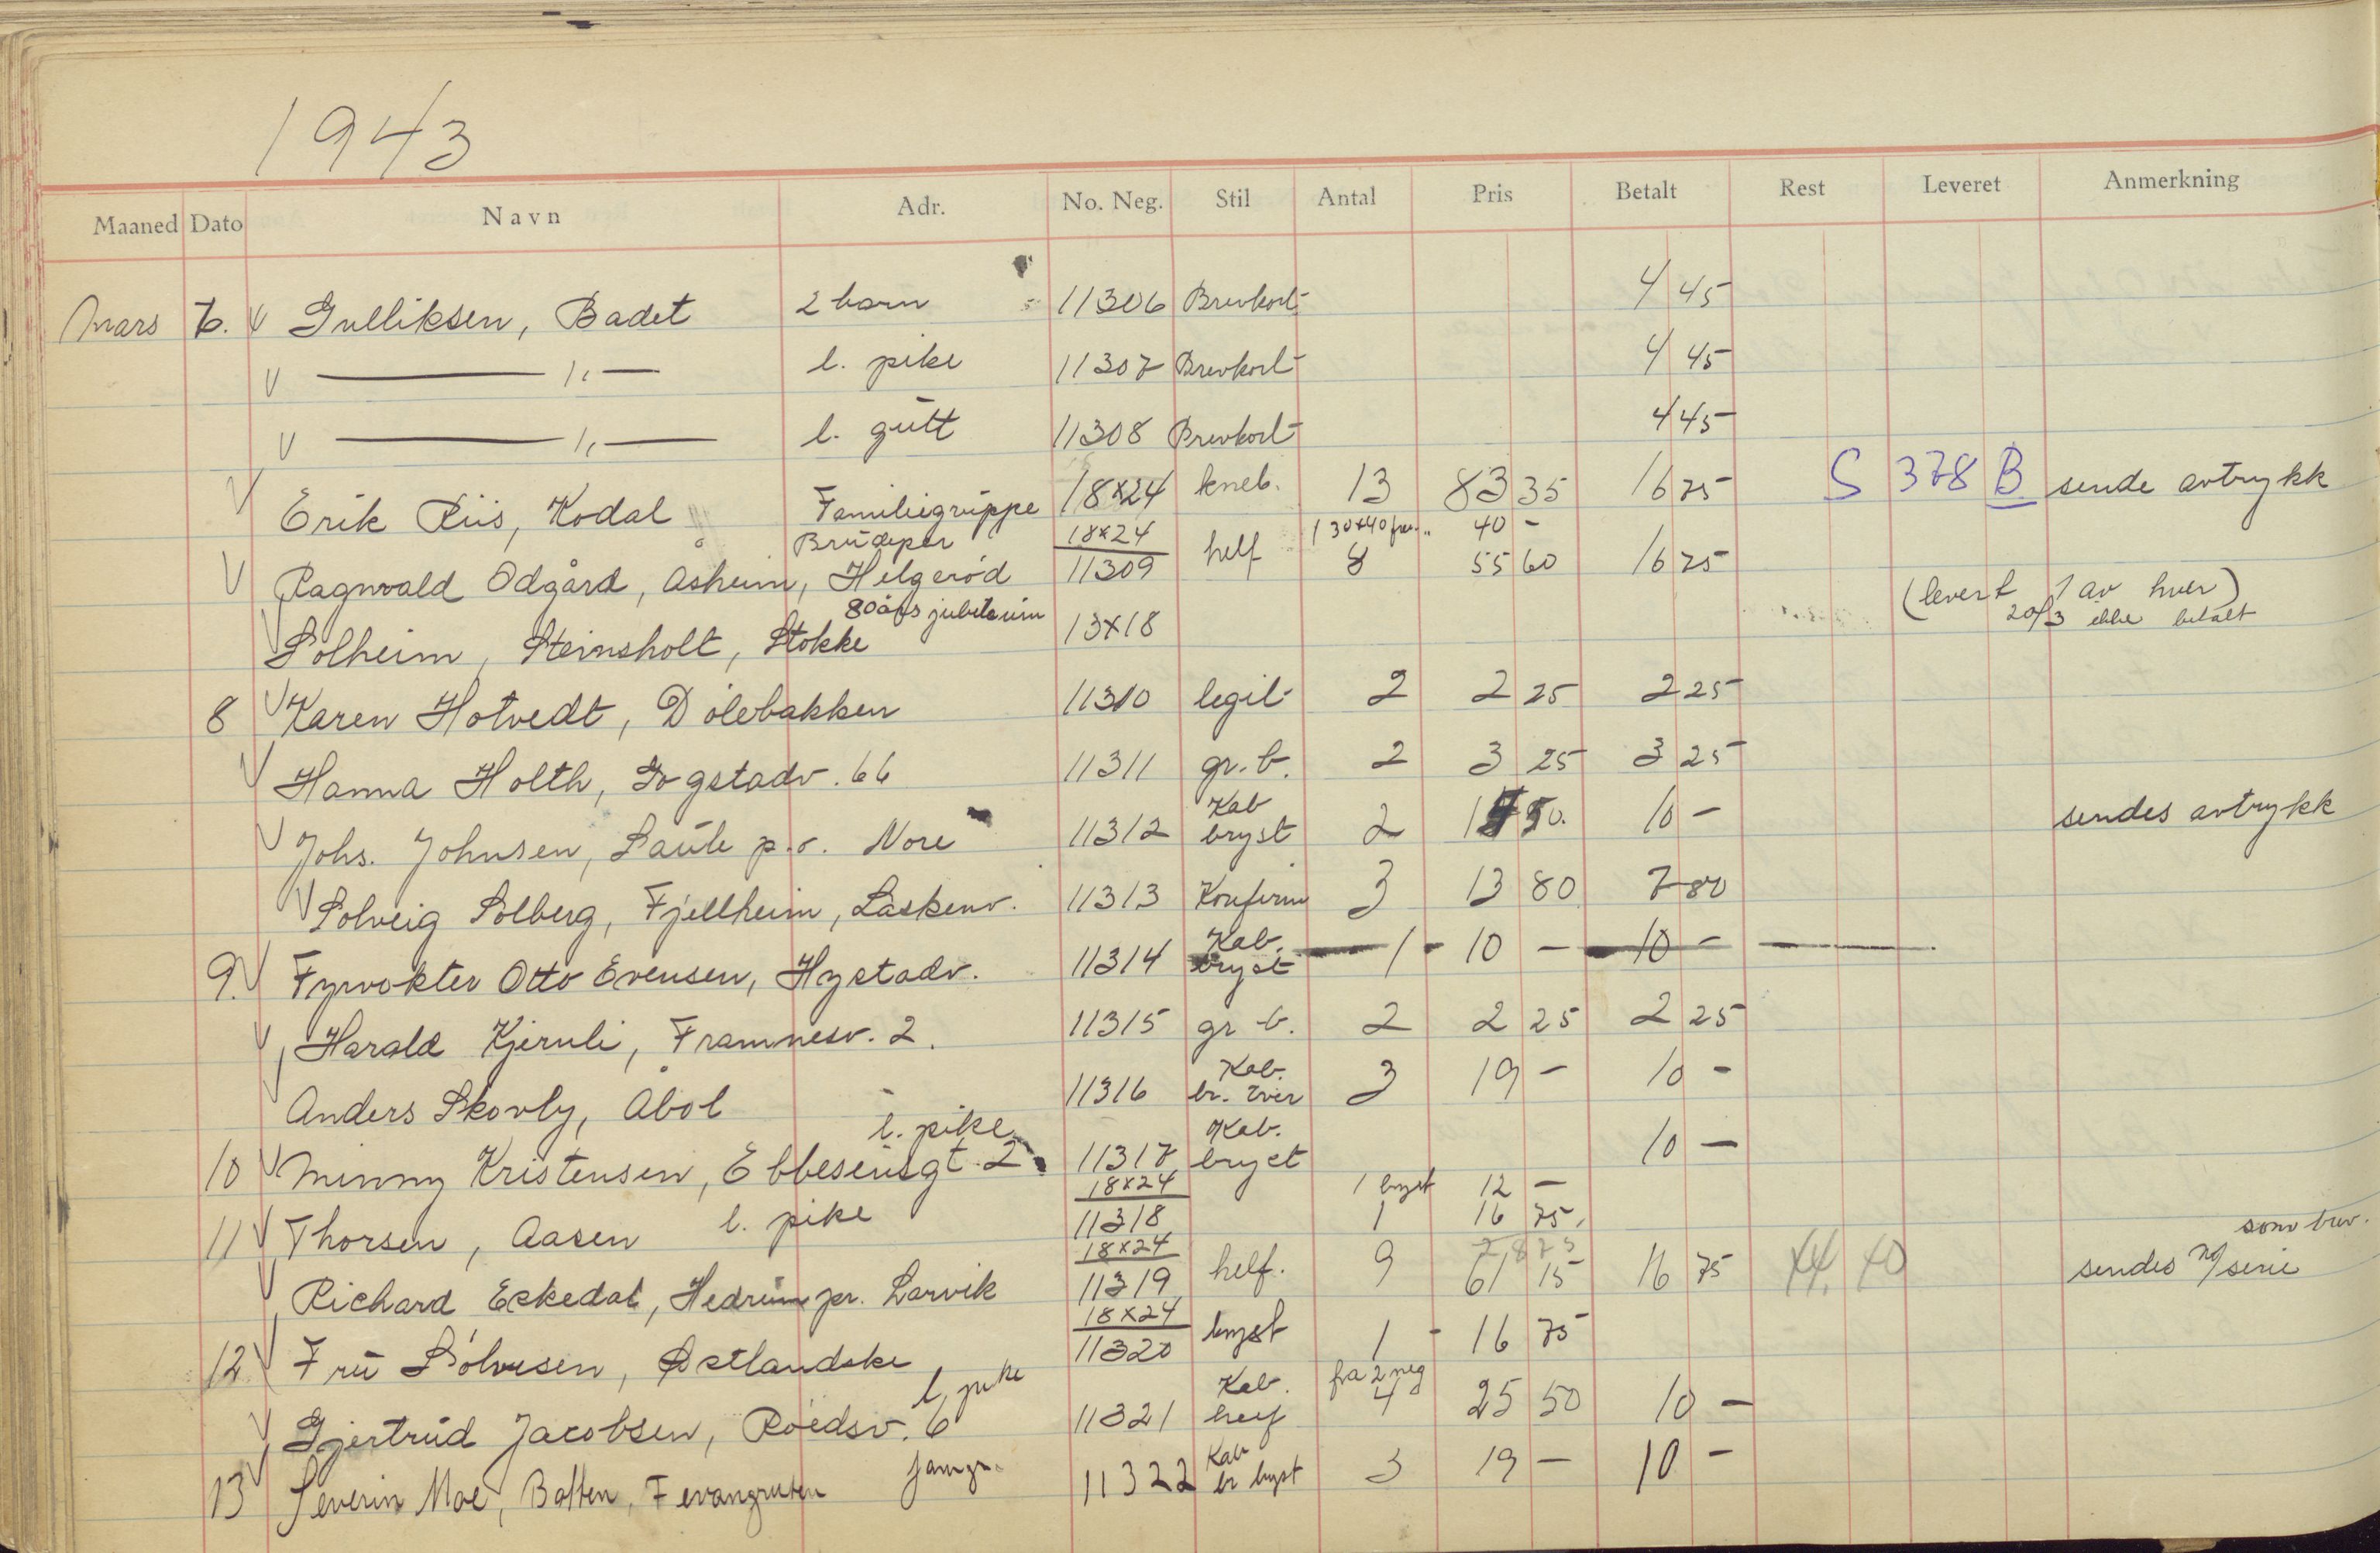 1943
Maaned Dato Navn Adr. No. Neg. Stil Antal Pris Betalt Rest Leveret Anmerkning
Mars 6. V Gulliksen, Badet 2 barn 11306 Brevkort 4 45
V — " — l. pike 11307 Brevkort 4 45
V — " — l. gutt 11308 Brevkort 4 45
V Erik Riis, Kodal Familiegruppe 18x24 kneb. 13 83 35 16 75 S 378 B sende avtrykk
Brudepar 18x24 1 30x40 40 -
V Ragnvald Odgård, Asheim, Helgerød 11309 helf 8 55 60 16 75
80 års jubileum (levert 1 av hver)
V Solheim, Steinsholt, Stokke 13x18 20/3 ikke betalt
8 V Karen Hotvedt, Dølebakken 11310 legit 2 2 25 2 25
V Hanna Holth, Gogstadv. 66 11311 gr. b. 2 3 25 3 25
V Johs. Johnsen, p.r. Nore 11312 Kab bryst 2 50. 10 - sendes avtrykk
V Solveig Solberg, Fjellheim, Laskenv. 11313 Konfirm 3 13 80 7 80
9. V Fyrvokter Otto Evensen, Hystadv. 11314 Kab. bryst 1 - 10 - 10 -
V Harald Kjernli, Framnesv. 2. 11315 gr b. 2 2 25 2 25
V Anders Skovly, Åbol 11316 Kab. br. 3 19 - 10 -
l. pike
10 V Minny Kristensen, Ebbesensgt. 2 11317 Kab. bryst 10 -
18x24 1 bryst 12 -
11 V Thorsen, Aasen l. pike 11318 1 16 75.
18x24 78 75 som brev.
V Richard Eskedal, Hedrum pr. Larvik 11319 helf. 9 61 15 16 75 44. 40 sendes m/serie
18x24
12 V Fru Sølvesen, Østlandske 11320 bryst 1 - 16 75
l. pike fra 2 neg
V Gjertrud Jacobsen, Roedsv. 6 11321 Kab. helf 4 25 50 10 -
13 V Severin Moe, Botten, 11322 Kab br bryst 3 19 - 10 -